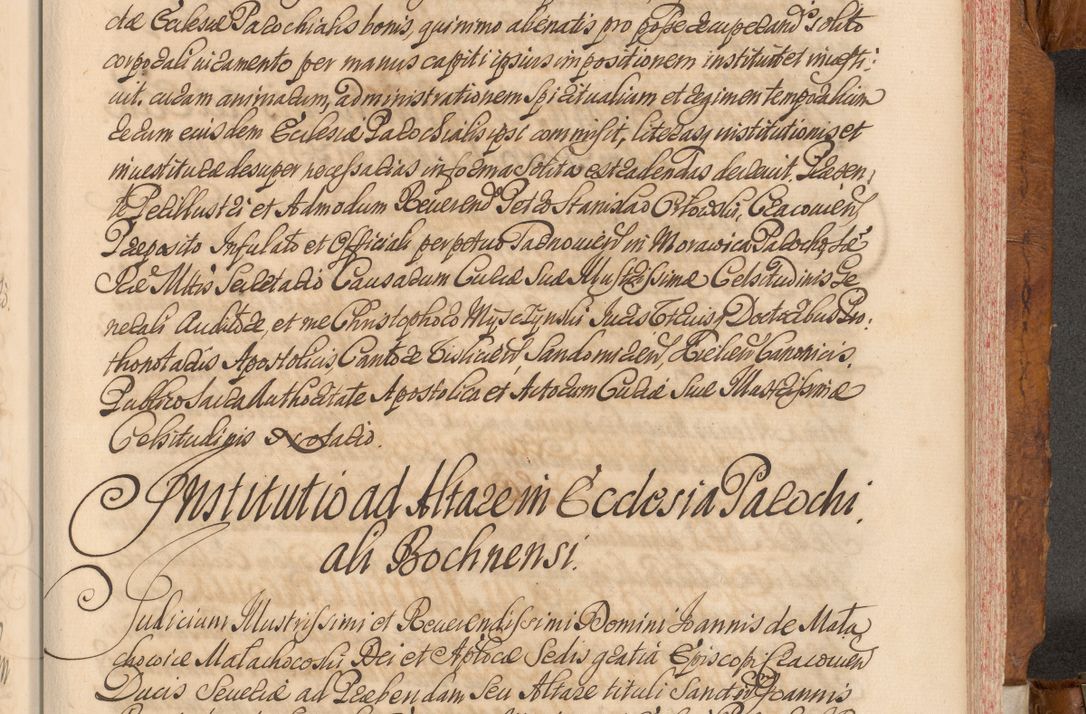 ctæ Ecclesiæ Parochialis bonis, quinimo alienatis pro posse recuperand' solito
corporali iuramento per manus capiti ipsius impositionem instituit et inuesti:
uit, curam animarum, administrationem spiritualium et regimen temporalium
rerum eiusdem Ecclesiæ Parochialis ipsi commisit, literasq institutionis et
inuestituræ desuper necessarias in forma solita extradendas decreuit. Præsen,
te Perillustri et Admodum Reuerendo Petro Stanislao Orłowski, Cracouien
Præposito Infulato et Officiali perpetuo Tarnouien in Morawica Parocho, Sæ
Ræ Mttis Secretario Causarum Curiæ Suæ Illustrissimæ Celsitudinis Ge
nerali Auditore, et me Christophoro Myszczynski Juris Utriusq Doctore Pro,
thonotario Apostolico, Cantore Sandomirien, Kielcen Canonico
Publico Sacra Authoritate Apostolica et Actorum Curiæ Suæ Illustrissimæ
Celsitudinis Notario.
Institutio ad Altare in Ecclesia Parochi,
ali Bochnensi.
Judicium Illustrissimi et Reuerendissimi Domini Joannis de Mała
chowice Małachowski Dei et Aplicæ Sedis gratia Episcopi Cracouien
Ducis Seueriæ ad Præbendam seu Altare tituli Sancti Joannis